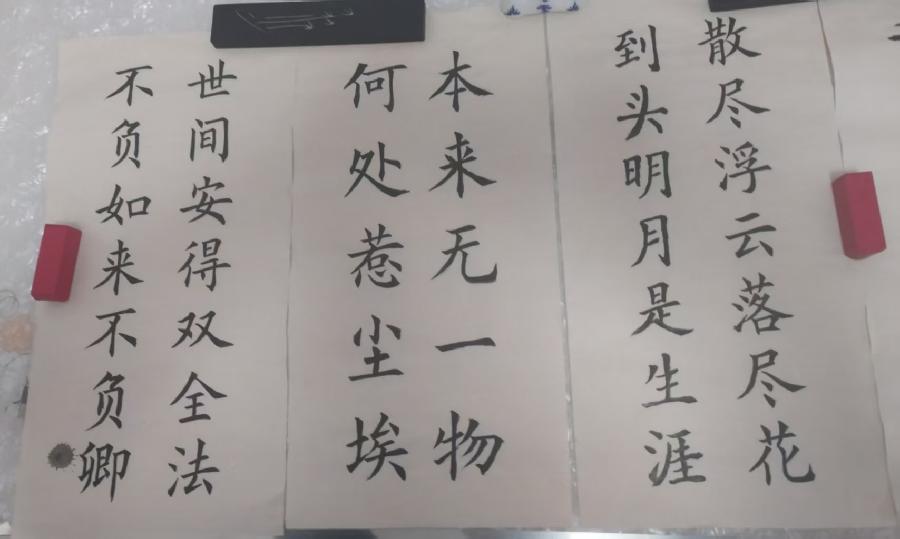 散尽浮云落尽花
到头明月是生涯
本来无一物
何处惹尘埃
世间安得双全法
不负如来不负卿